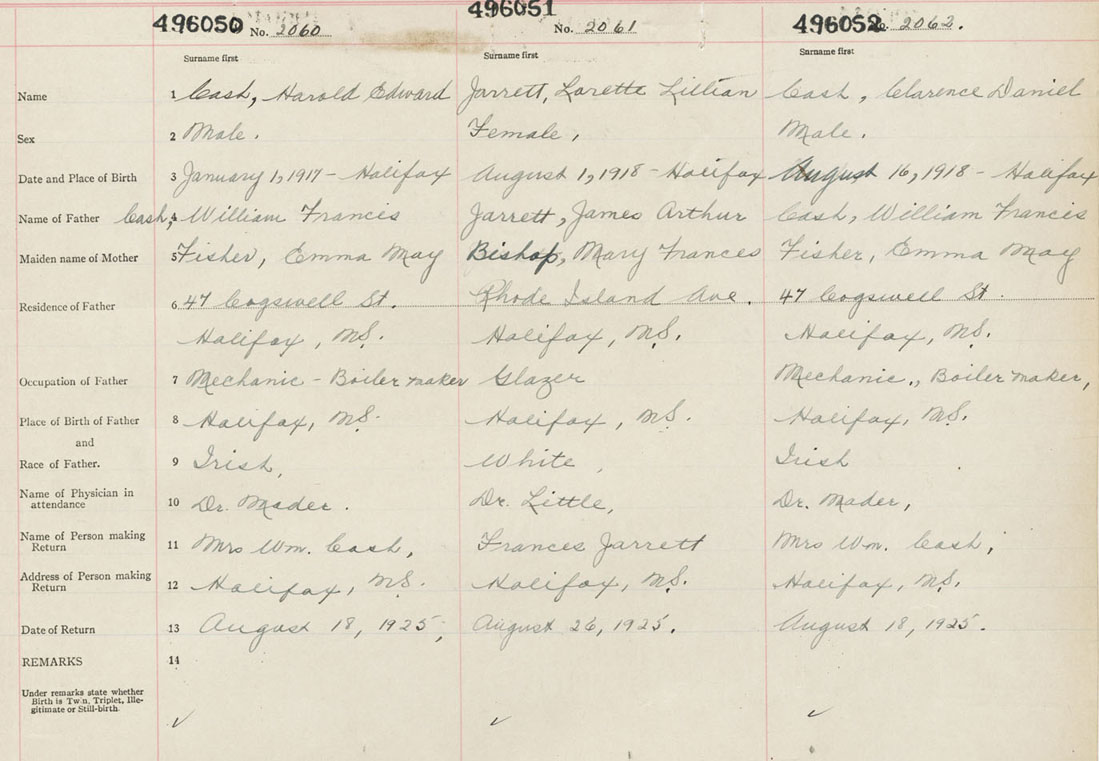 496050 No. 2060
496051 No. 2061
496052 No. 2062.
Surname first Surname first Surname first
Name 1 Cash, Harold Edward Jarrett, Lorette Lillian Cash, Clarence Daniel
Sex 2 Male. Female, Male.
Date and Place of Birth 3 January 1, 1917 - Halifax August 1, 1918 - Halifax August 16, 1918 - Halifax
Name of Father 4 Cash, William Francis Jarrett, James Arthur Cash, William Francis
Maiden name of Mother 5 Fisher, Emma May Bishop, Mary Frances Fisher, Emma May
Residence of Father 6 47 Cogswell St. Rhode Island Ave. 47 Cogswell St.
Halifax, N.S. Halifax, N.S. Halifax, N.S.
Occupation of Father 7 Mechanic - Boiler maker Glazer Mechanic., Boiler maker,
Place of Birth of Father 8 Halifax, N.S. Halifax, N.S. Halifax, N.S.
and
Race of Father. 9 Irish, White, Irish
Name of Physician in
attendance 10 Dr. Mader. Dr. Little, Dr. Mader,
Name of Person making
Return 11 Mrs Wm. Cash, Frances Jarrett Mrs Wm. Cash,
Address of Person making
Return 12 Halifax, N.S. Halifax, N.S. Halifax, N.S.
Date of Return 13 August 18, 1925, August 26, 1925. August 18, 1925.
REMARKS 14
Under remarks state whether
Birth is Twin, Triplet, Ille-
gitimate or Still-birth.